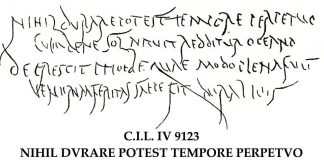 NIHIL DURARE POTEST TEMPORE PERPETUO
CUM BENE SOL NITUIT REDDITUR OCEANO
DECRESCIT PHOEBE QUAE MODO PLENA FUIT
FERITAS SAEPE FIT AURA LEVIS
C.I.L. IV 9123
NIHIL DVRARE POTEST TEMPORE PERPETVO